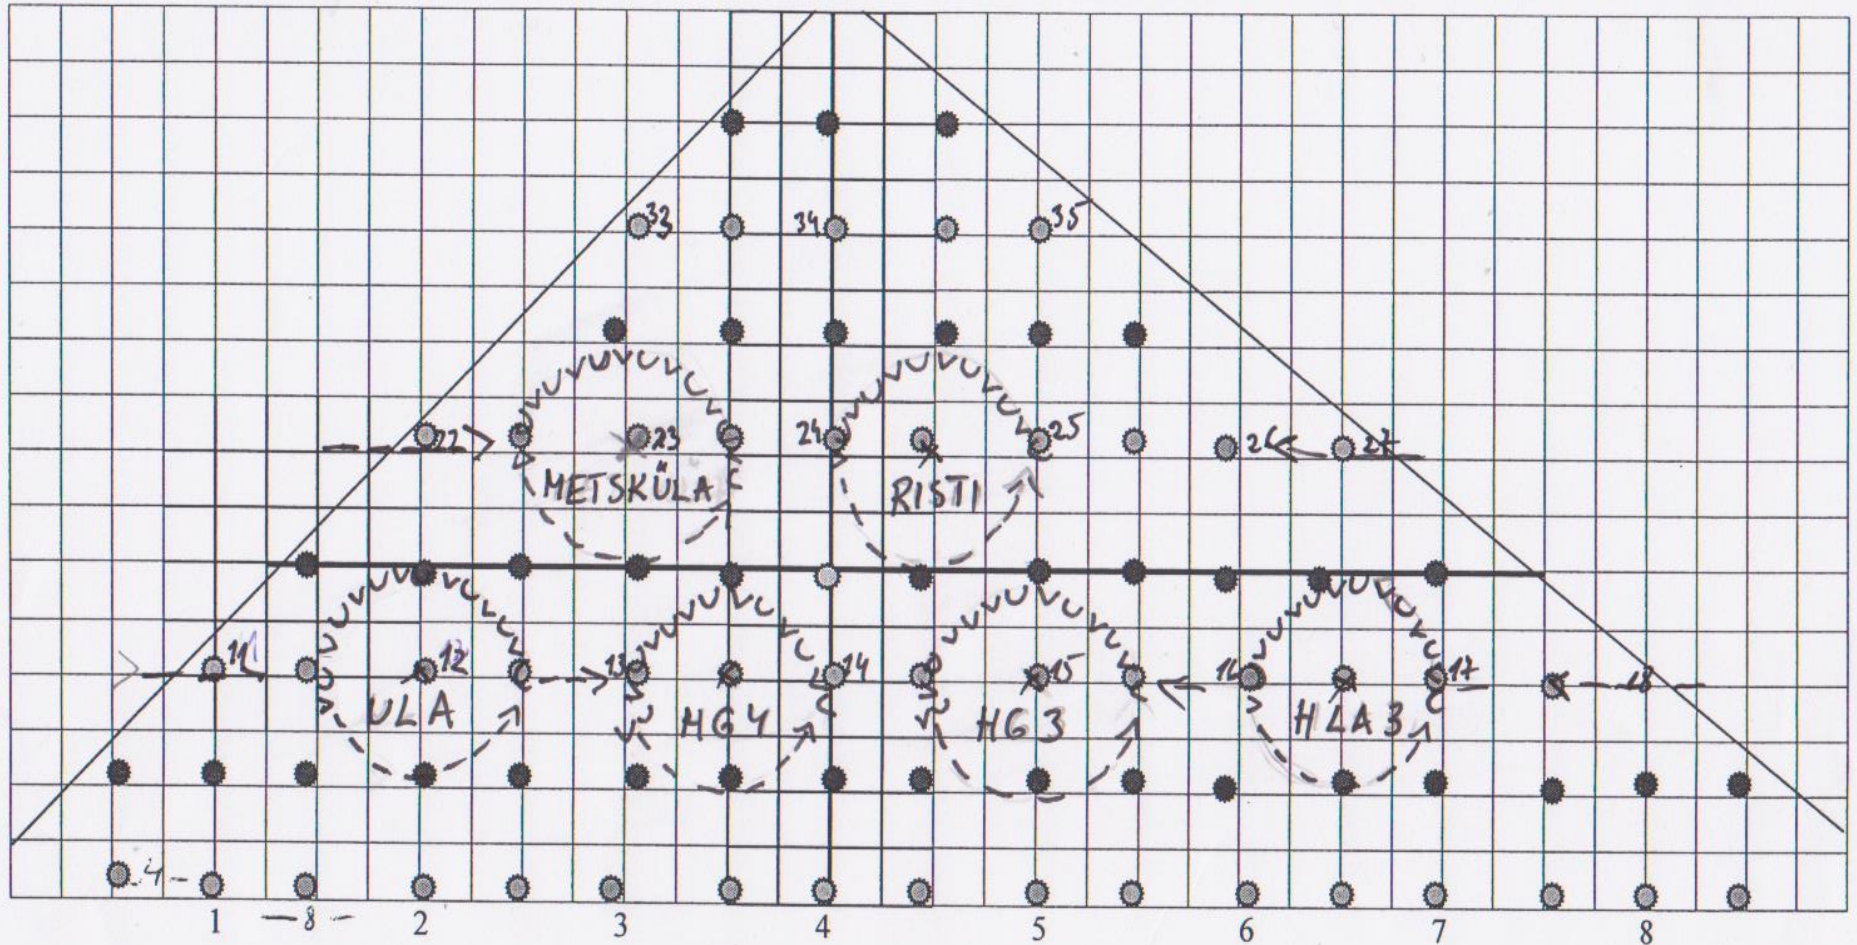 33 34 35
22 23 24 25 26 27
METSKÜLA RISTI
11 12 13 14 15 16 17 18
ULA HG4 HG3 HLA3
4
1 8 2 3 4 5 6 7 8